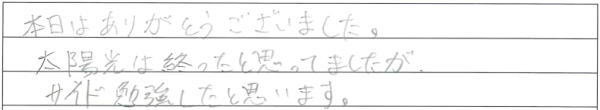 本日はありがとうございました。
太陽光は終ったと思ってましたが、
サイド勉強したと思います。